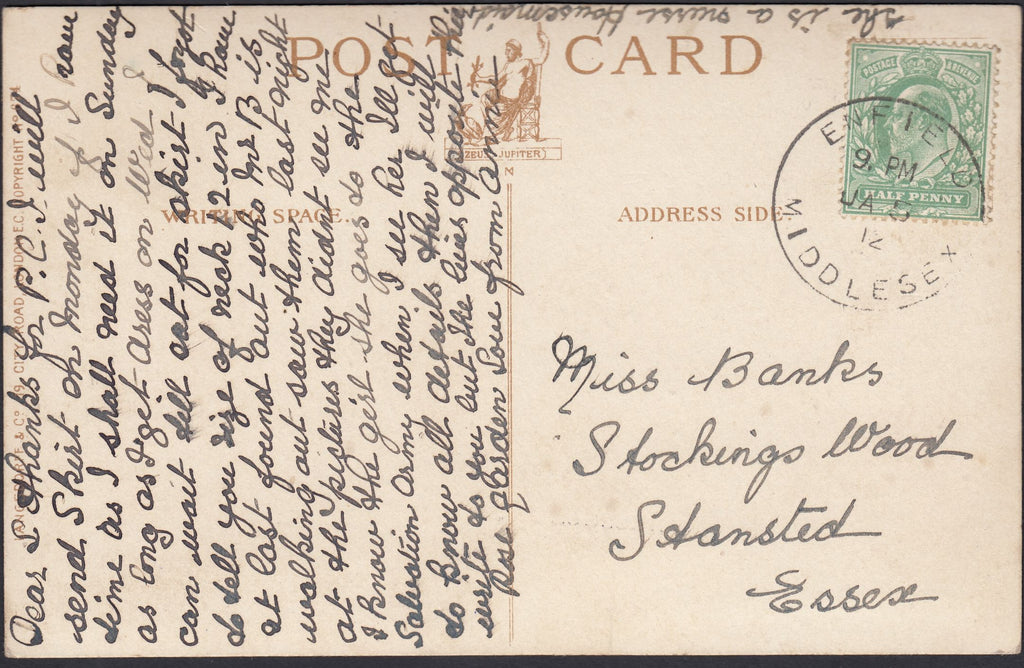 she is a nurse Housemaid
POST CARD
ZEUS (JUPITER)
WRITING SPACE.
ADDRESS SIDE
POSTAGE & REVENUE
HALF PENNY
ENFIELD
9. PM
JA 5
12
MIDDLESEX
Miss Banks
Stockings Wood
Stansted
Essex
CITY ROAD, LONDON, E.C. COPYRIGHT
Dear L thanks for P.C. I will
send Skirt on monday if I have
time as I shall need it on Sunday
as long as I get dress on Wed I
can wait till sat for skirt I forgot
to tell you size of neck 12 in I have
at last found out who Mr B is
walking out saw them last night
at the pictures they didnt see me
I know the girl she goes to the
Salvation army when I see her Ill get
to know all details then I will
write to you but she lives opposite the
Rose garden Love from Annie